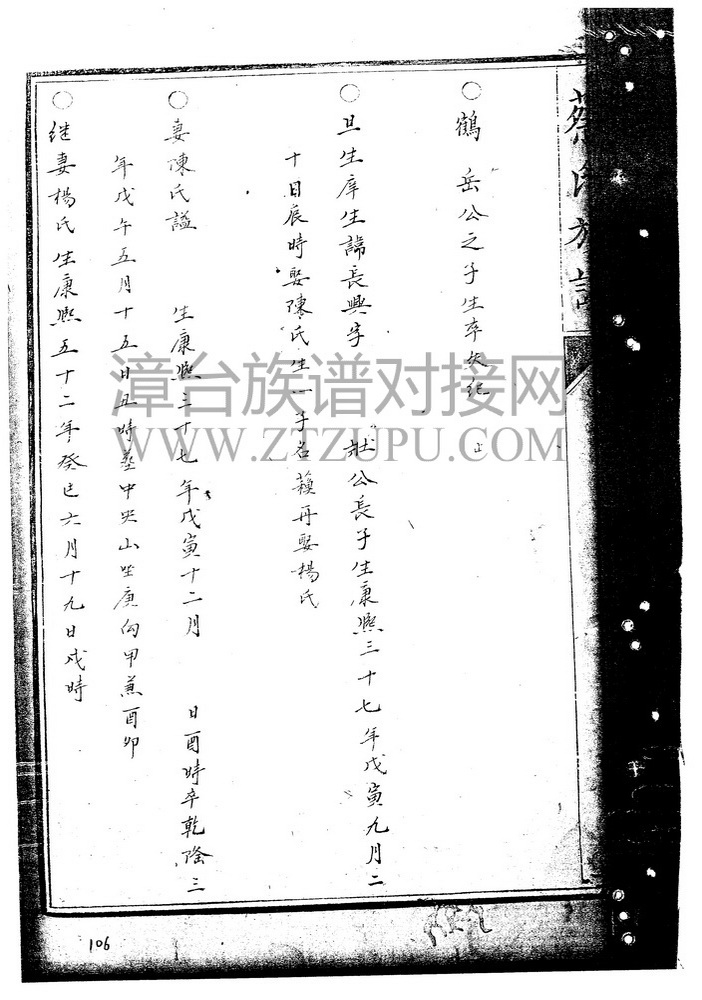 蔡氏族譜
鶴岳公之子生卒失紀 止
旦生庠生諱長興字 壯公長子生康熙三十七年戊寅九月二
十日辰時娶陳氏生一子名蘋再娶楊氏
妻陳氏謚 生康熙三十七年戊寅十二月 日酉時卒乾隆三
年戊午五月十五日丑時葬中央山坐庚向甲兼酉卯
继妻楊氏生康熙五十二年癸巳六月十九日戌時
106
漳台族谱对接网
WWW.ZTZUPU.COM